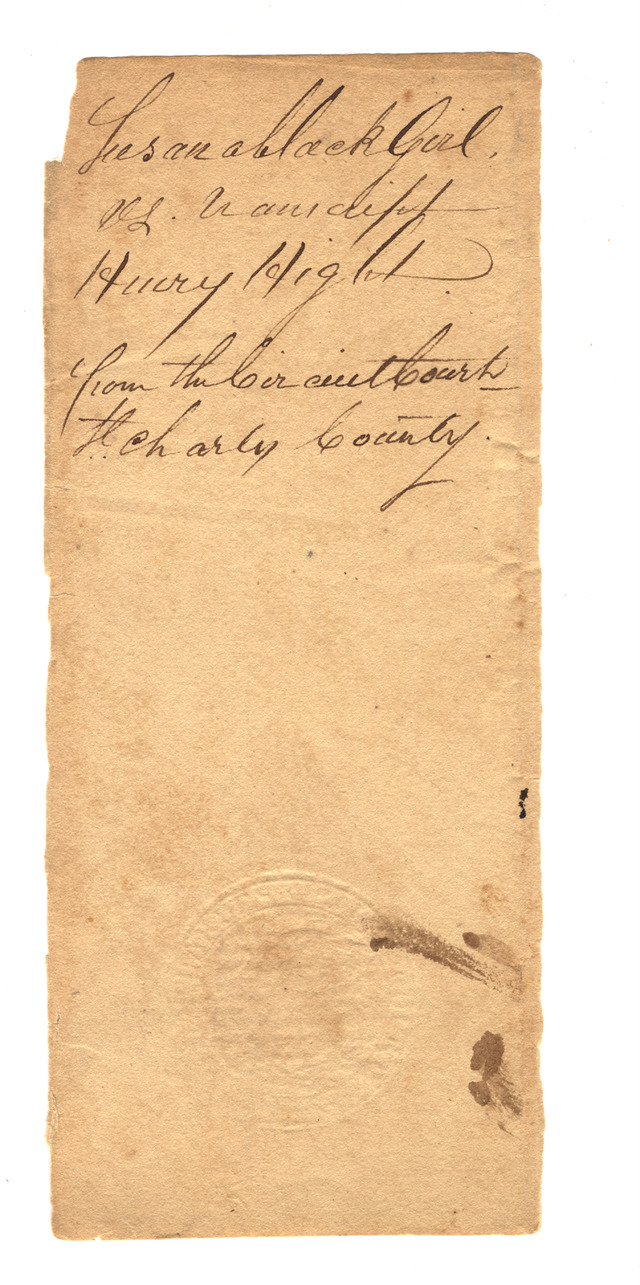 Susan a black Girl.
vs. Transcript
Henry Hight
from the Circuit Court
St. Charles County.